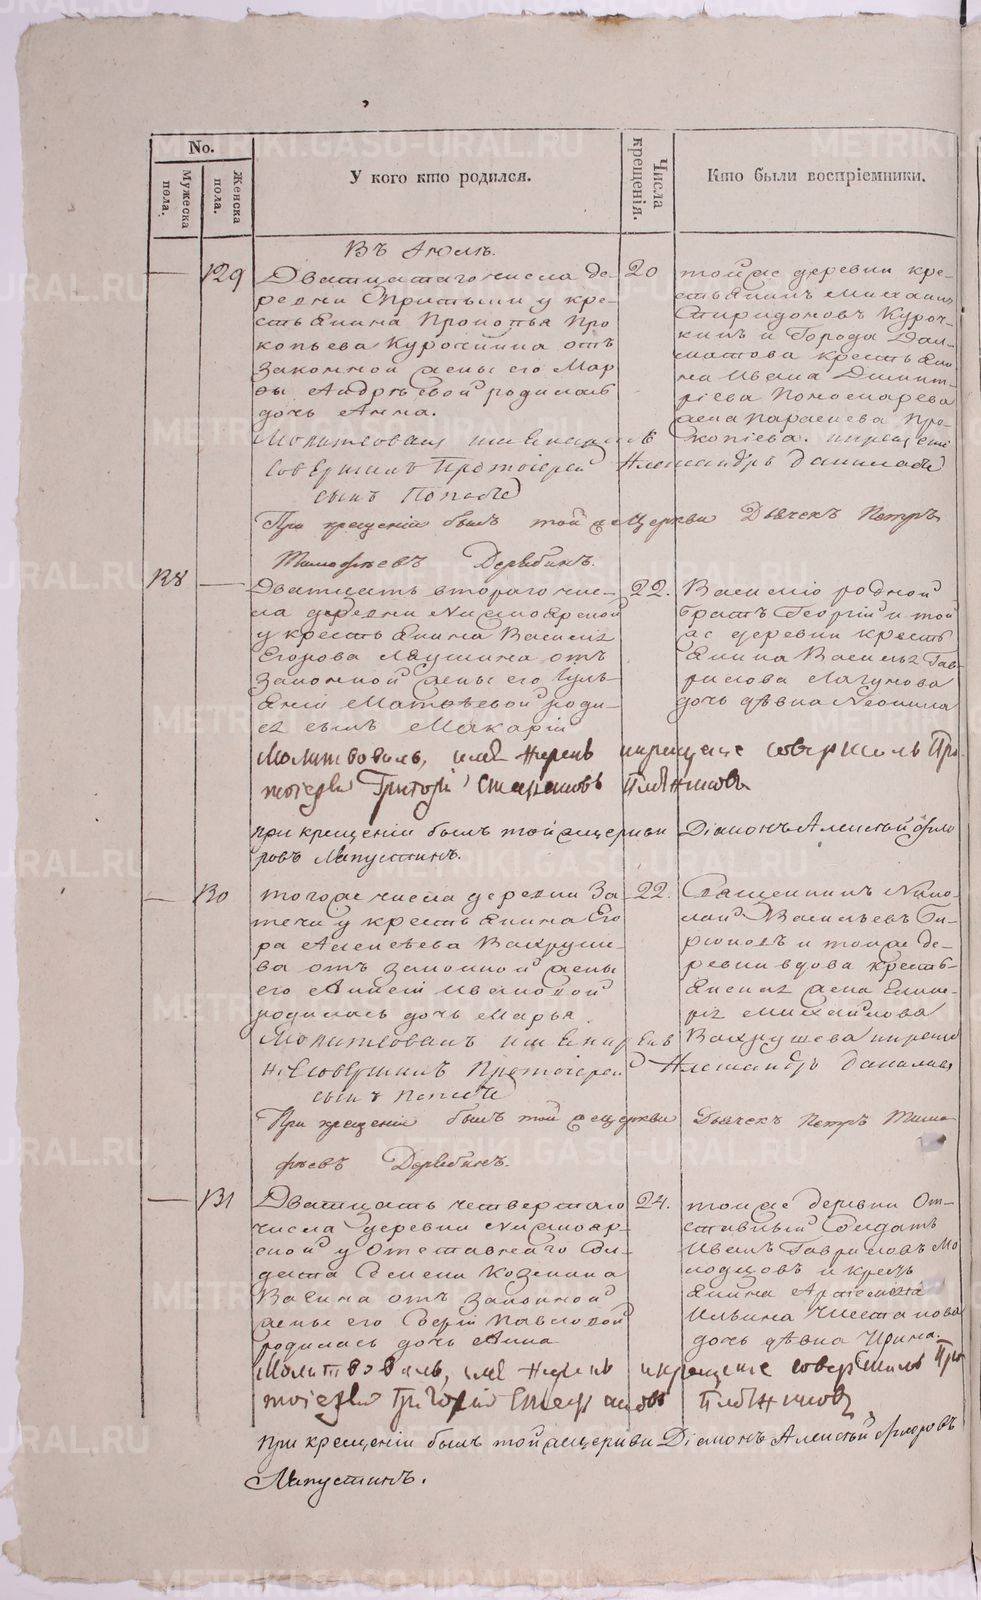 No.
Мужеска пола.
Женска пола.
У кого кто родился.
Числа крещенія.
Кто были воспріемники.
Въ Июлѣ.
129
Дватцатаго числа де-
ревни Притыки у кре-
стьянина Прокопья Про
копьева Курочкина отъ
законной жены его Мар
ѳы Андрѣевой родилась
дочь Анна.
20
тойже деревни кре-
стьянинъ Михаилъ
Спиридоновъ Куроч-
кинъ и Города Дал-
матова крестьяни
на Ивана Димит-
ріева Пономарева
жена Параскева Про-
копіева.
Молитвовалъ имя нарекъ и крещеніе
совершилъ Протоіерей Александръ Даниловъ
сынъ Поповъ
При крещеніи былъ той же церкви Дьячекъ Петръ
Тимофѣевъ Дерябинъ.
128
Дватцать втораго чис-
ла деревни Нижноярской
у крестьянина Василья
Егорова Ляпунина отъ
законной жены его Улья-
яніи Матвѣевой роди-
ся сынъ Макарій
22.
Василію родной
братъ Георгій и той
же деревни кресть
янина Василья Гав-
рилова Лагунова
дочь дѣвка Неонила
Молитвовалъ, имя нарекъ и крещеніе совершилъ Про
тоіерей Григорій Стефановъ Плотниковъ
при крещеніи былъ той же церкви Діаконъ Алексѣй Ѳедо
ровъ Лапустинъ.
130
тогоже числа деревни За
течи у крестьянина Его
ра Алексѣева Вахруше-
ва отъ законной жены
его Аниси Ивановой
родилась дочь Марья.
22.
Священникъ Нико-
лай Васильевъ Би-
рюковъ и тойже де-
ревни вдова кресть-
янская жена Екате-
ри Михайлова
Вахрушева
Молитвовалъ имя нарекъ и креще
ніе совершилъ Протоіерей Александръ Даниловъ
сынъ Поповъ
При крещеніи былъ той же церкви Дьячекъ Петръ Тимо
фѣевъ Дерябинъ.
131
Дватцать четвертаго
числа деревни Нижнояр-
ской у Отставнаго Сол-
дата Семена Козмина
Вагина отъ законной
жены его Павловой
родилась дочь Анна
24.
тойже деревни От-
ставный Солдатъ
Иванъ Гавриловъ Мо
лодцовъ и крест
янина Артемія
Ильина Шестакова
дочь дѣвка Ирина.
Молитвовалъ, имя нарекъ и крещеніе совершилъ Про
тоіерей Григорій Стефановъ Плотниковъ
При крещеніи былъ той же церкви Діаконъ Алексѣй Ѳедоровъ
Лапустинъ.
METRIKI.GASO-URAL.RU